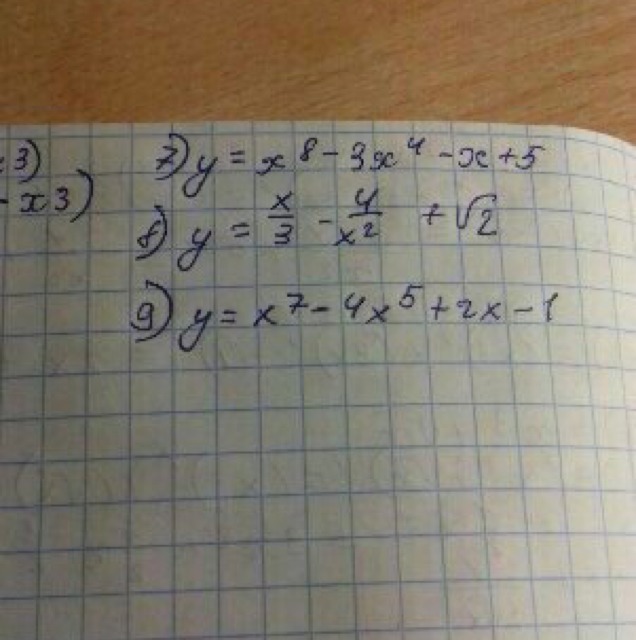 3)
- x3)
7) y = x⁸ - 3x⁴ - x + 5
8) y = x/3 - 4/x² + √2
9) y = x⁷ - 4x⁵ + 2x - 1